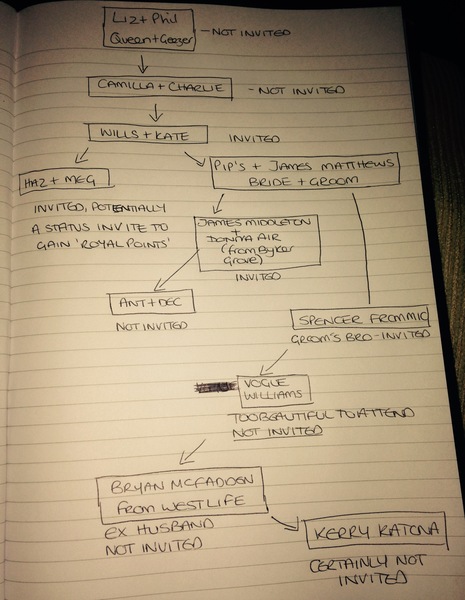 Liz + Phil
Queen + Geezer
- NOT INVITED
CAMILLA + CHARLIE
- NOT INVITED
WILLS + KATE
INVITED
HAZ + MEG
INVITED, POTENTIALLY
A STATUS INVITE TO
GAIN 'ROYAL POINTS'
PIP'S + JAMES MATTHEWS
BRIDE + GROOM
JAMES MIDDLETON
+
DONNA AIR
(from Byker
Grove)
INVITED
ANT + DEC
NOT INVITED
SPENCER FROM MIC
GROOM'S BRO - INVITED
VOGUE
WILLIAMS
TOO BEAUTIFUL TO ATTEND
NOT INVITED
BRYAN MCFADDEN
FROM WESTLIFE
EX HUSBAND
NOT INVITED
KERRY KATONA
CERTAINLY NOT
INVITED